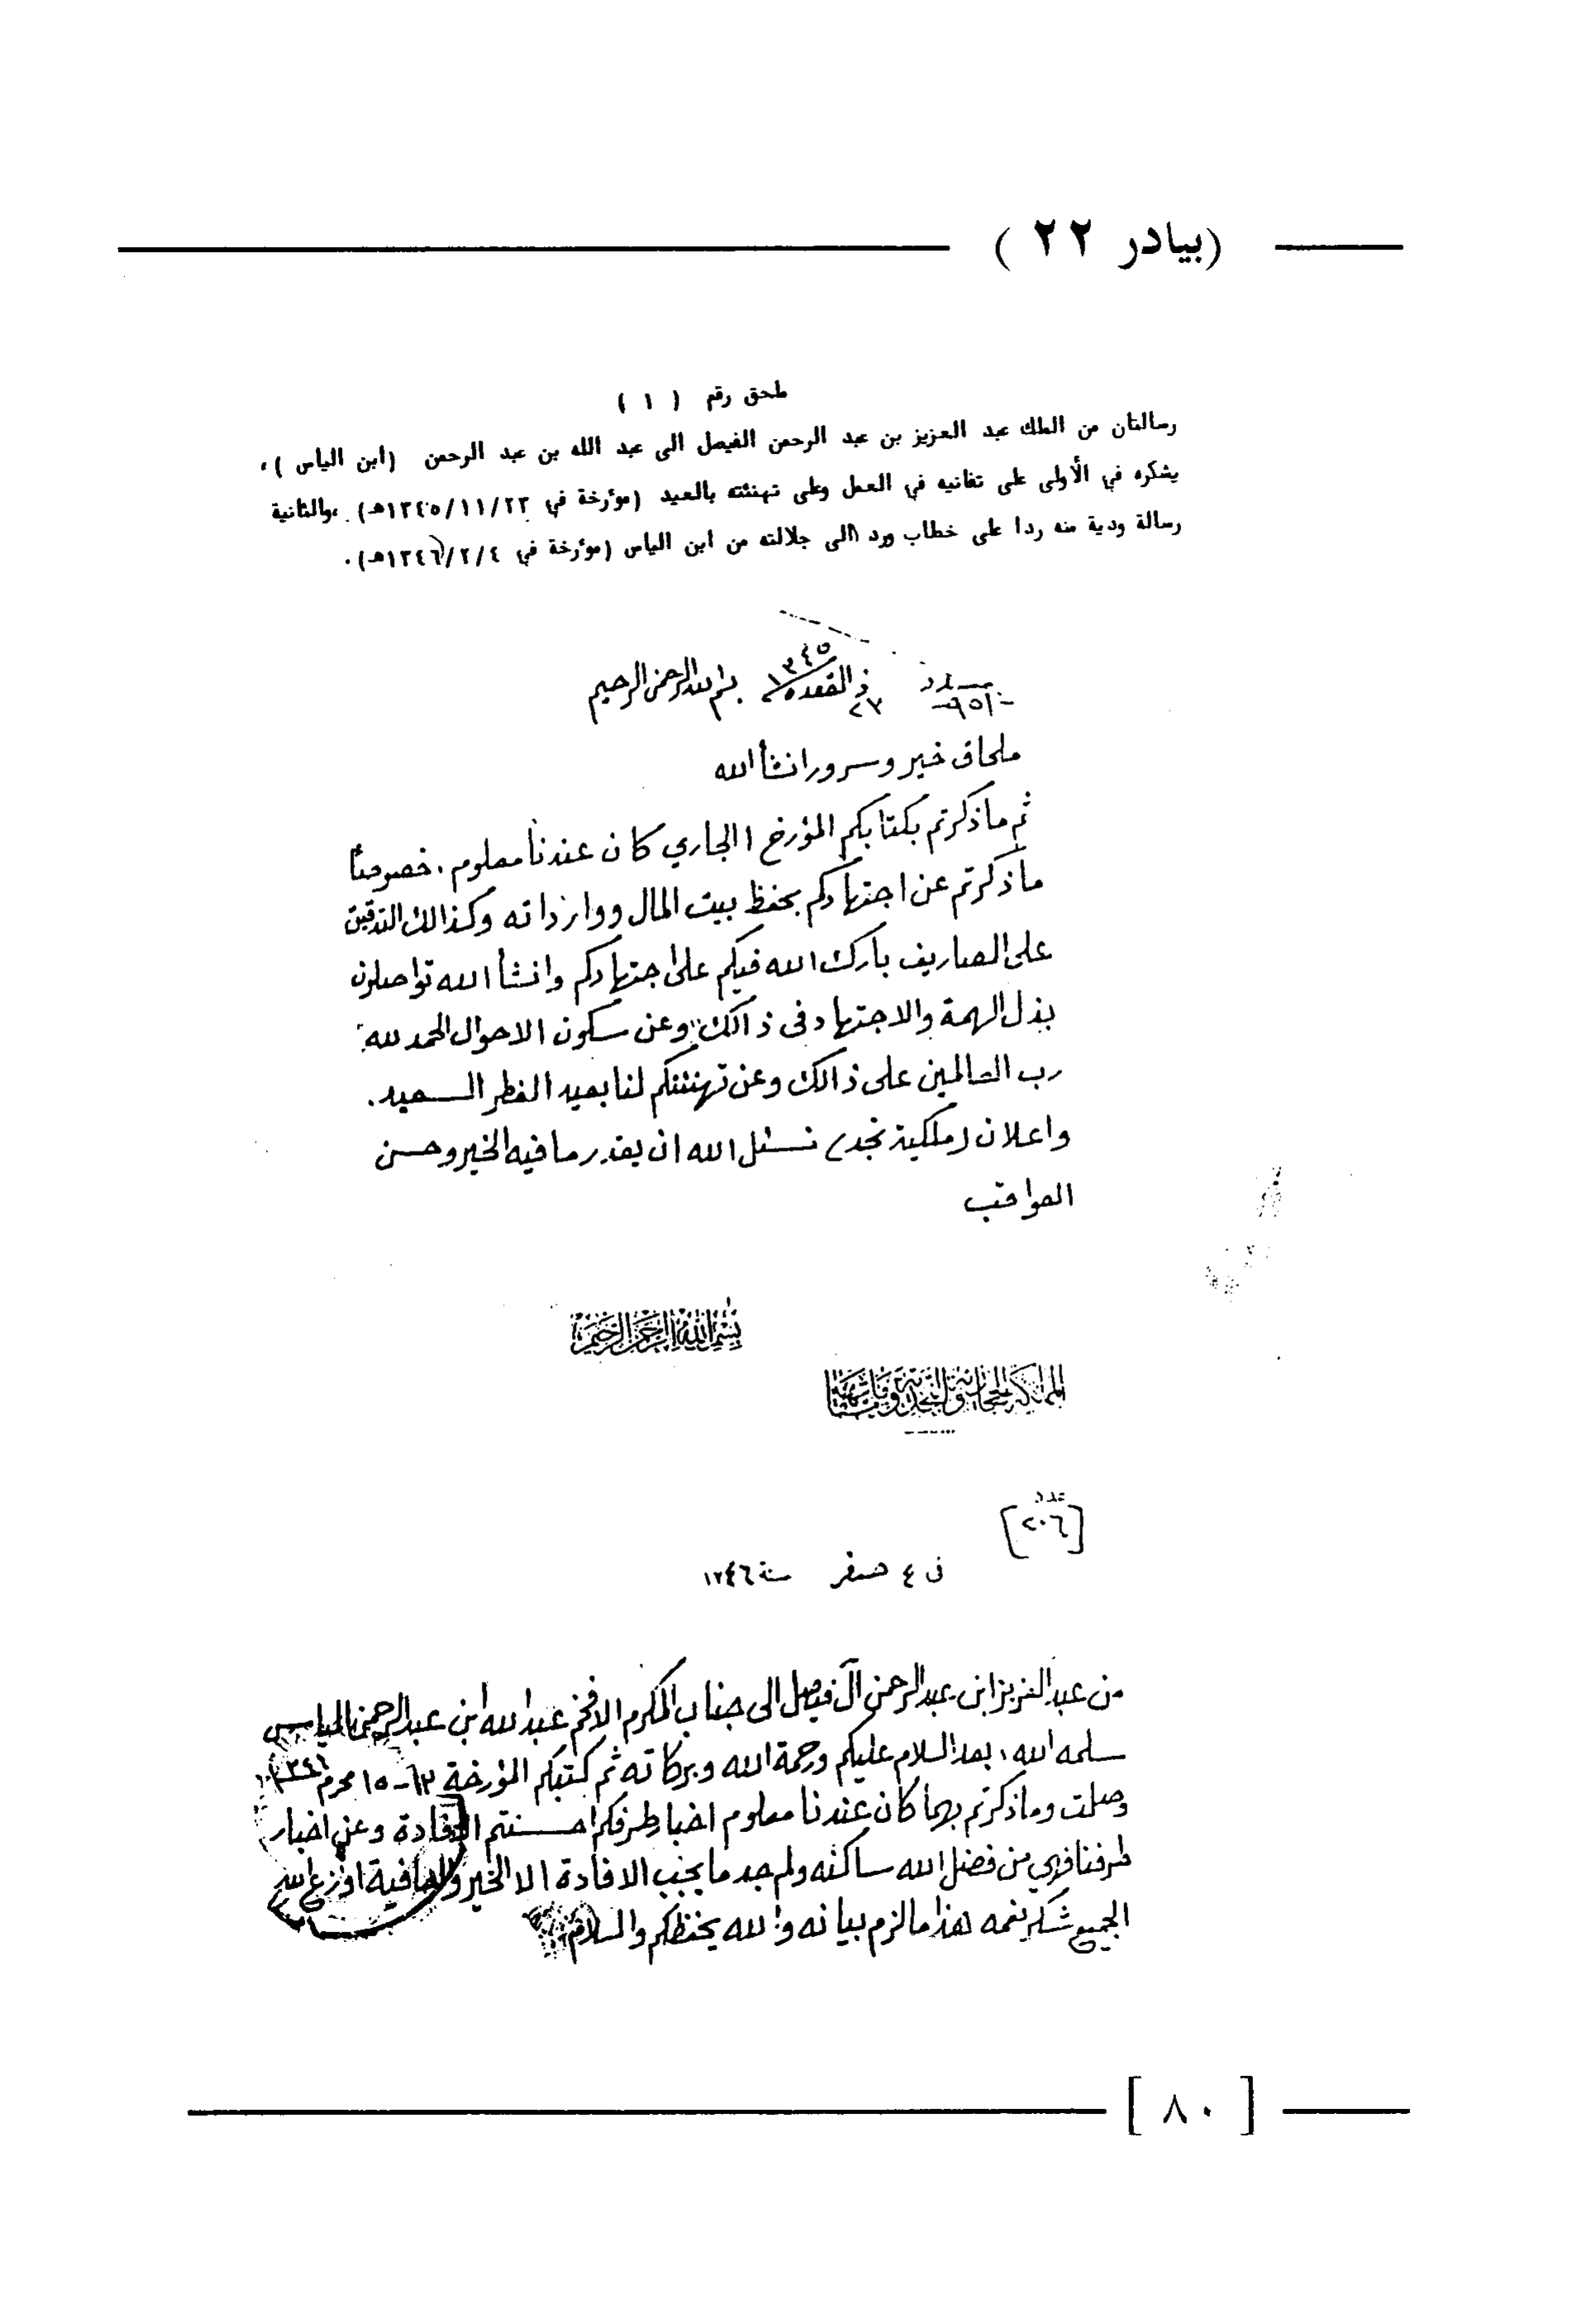 (بيادر ٢٢ )
ملحق رقم ( ١ )
رسالتان من الملك عبد العزيز بن عبد الرحمن الفيصل الى عبد الله بن عبد الرحمن (ابن الياس )،
يشكره في الأولى على تفانيه في العمل وعلى تهنئته بالعيد (مؤرخة في ١٣٤٥/١١/٢٣هـ) ،والثانية
رسالة ودية منه ردا على خطاب ورد االى جلالته من ابن الياس (مؤرخة في ١٣٤٦/٢/٤هـ).
بسم الله الرحمن الرحيم ذ القعده ١٣٤٥
ملحاق خير وسرور انشأ الله
ثم ما ذكرتم بكتابكم المؤرخ ١ الجاري كان عندنا معلوم . خصوصاً
ما ذكرتم عن اجتهادكم بحفظ بيت المال ووارداته وكذالك التدقيق
على المصاريف بارك الله فيكم على اجتهادكم وانشأ الله تواصلون
بذل الهمة والاجتهاد في ذالك وعن سكون الاحوال الحمد لله
رب العالمين على ذالك وعن تهنئتكم لنا بعيد الفطر السعيد.
واعلان (ملكية نجد) نسئل الله ان يقدر ما فيه الخير وحسن
العواقب
بسم الله الرحمن الرحيم
المملكة الحجازية والنجدية وملحقاتها
عدد
[٢٠٦]
فى ٤ صفر سنة ١٣٤٦
من عبد العزيز ابن عبد الرحمن آل فيصل الى جناب المكرم الافخم عبد الله ابن عبد الرحمن الياس
سلمه الله، بعد السلام عليكم ورحمة الله وبركاته ثم كتبكم المؤرخة ١٣-١٥ محرم
وصلت وما ذكرتم بهما كان عندنا معلوم اخبار طرفكم احسنتم الافادة وعن اخبار
طرفنا فهي من فضل الله ساكنه ولم جد ما يجب الافادة الا الخير والعافية اوزع الله
الجميع شكر نعمه هذا ما لزم بيانه والله يحفظكم والسلام
[ ٨٠ ]